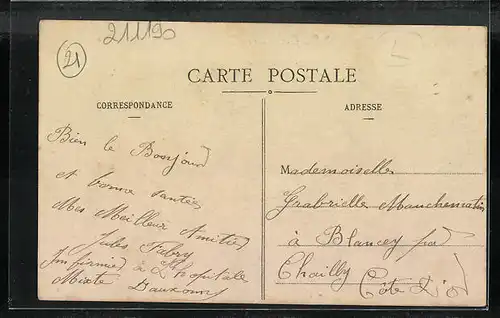 21190
21
CARTE POSTALE
CORRESPONDANCE
Bien le Bonjour
et bonne santée
Mes Meilleur Amitiés
Jules Fabry
Infirmié à L'Hopitale
Mixte Dauxonne
ADRESSE
Mademoiselle
Grabrielle Manchematin
à Blancey par
Chailly Côte d'or